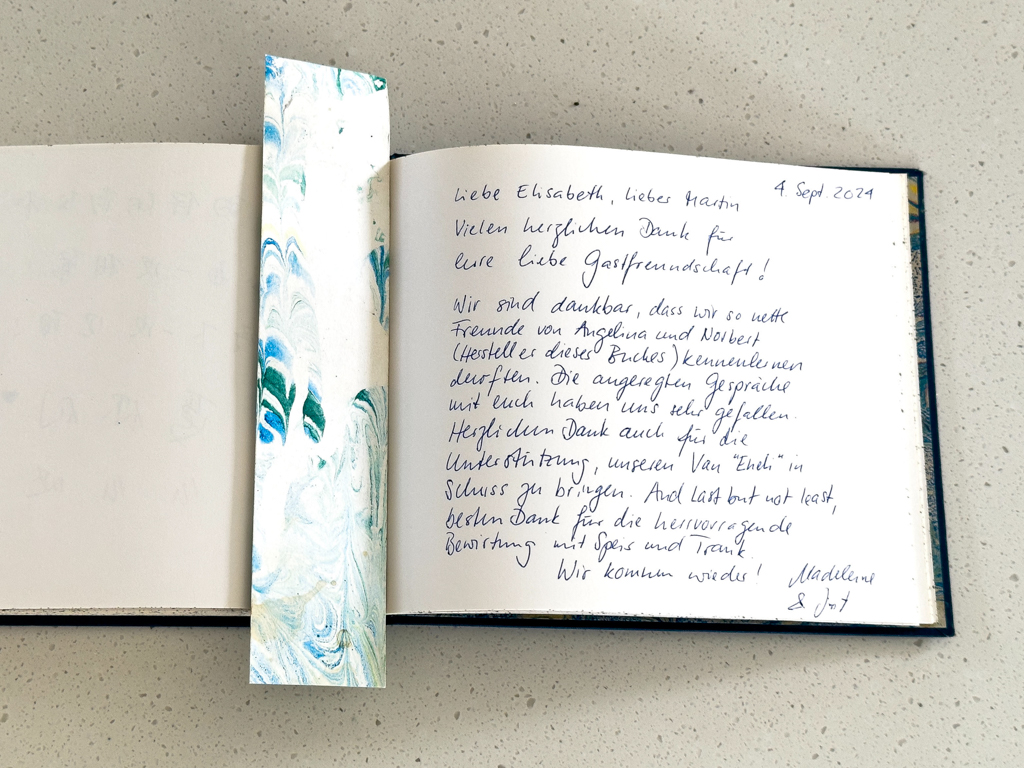 4. Sept. 2024
Liebe Elisabeth, lieber Martin
Vielen herzlichen Dank für
eure liebe Gastfreundschaft!
Wir sind dankbar, dass wir so nette
Freunde von Angelina und Norbert
(Hersteller dieses Buches) kennenlernen
durften. Die angeregten Gespräche
mit euch haben uns sehr gefallen.
Herzlichen Dank auch für die
Unterstützung, unseren Van "Endi" in
Schuss zu bringen. And last but not least,
besten Dank für die hervorragende
Bewirtung mit Speis und Trank.
Wir kommen wieder! Madeleine
&